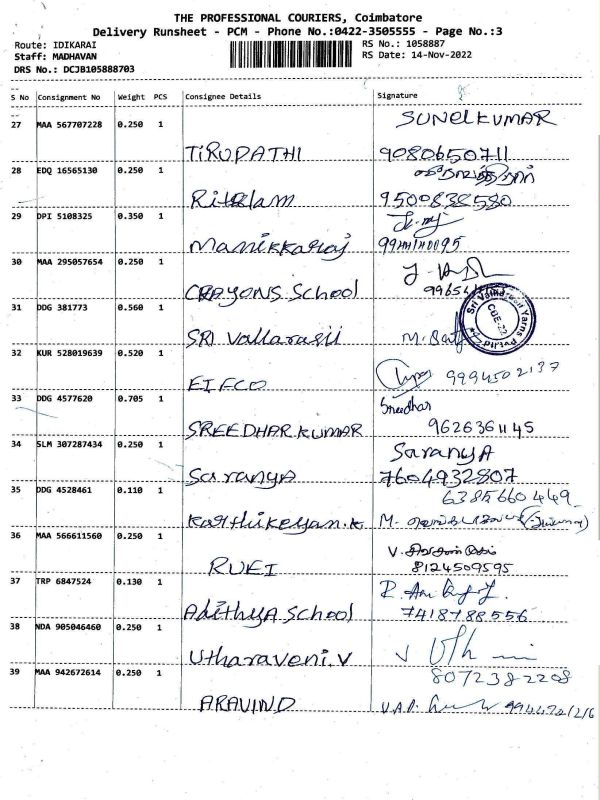 THE PROFESSIONAL COURIERS, Coimbatore
Delivery Runsheet - PCM - Phone No.:0422-3505555 - Page No.:3
Route: IDIKARAI
RS No.: 1058887
Staff: MADHAVAN
RS Date: 14-Nov-2022
DRS No.: DCJB105888703
S No Consignment No Weight PCS Consignee Details Signature
27 MAA 567707228 0.250 1 SUNELKUMAR
TIRUPATHI 9080650711
28 EDQ 16565130 0.250 1
9500838580
29 DPI 5108325 0.350 1
Manikkaraj
30 MAA 295057654 0.250 1
CRAYONS School
31 DDG 381773 0.560 1 Sri Vallarasii Yarns Pvt Ltd CBE-22
SRI Vallarasii
32 KUR 528019639 0.520 1
EIFCO 9994502137
33 DDG 4577620 0.705 1 Sreedhar
SREEDHAR KUMAR 9626361145
34 SLM 307287434 0.250 1 SaranyA
SaranyA 7604932807
35 DDG 4528461 0.110 1 6385660449
Karthikeyan.k M.
36 MAA 566611560 0.250 1
RUEI 8124509595
37 TRP 6847524 0.130 1
AdithyA School 7418788556
38 NDA 905046460 0.250 1
Utharaveni.V 8072382208
39 MAA 942672614 0.250 1
ARAVIND